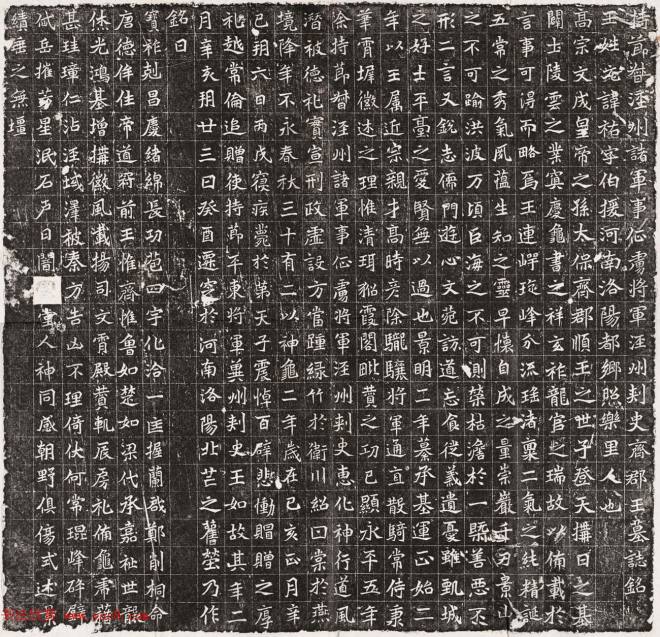 持節督涇州諸軍事征虜將軍涇州刺史齊郡王墓誌銘
王姓元諱祐字伯援河南洛陽都鄉照樂里人也
高宗文成皇帝之孫太保齊郡順王之世子登天搆日之基
闢土陵雲之業寘慶龜書之祥玄祚龍官之瑞故以備載於
言事可得而略焉王連嶧琁峰分流瑤渚稟二氣之純精誕
五常之秀氣夙蘊生知之靈早懷自成之量崇巖千刃景山
之不可踰洪波万頃巨海之不可測榮枯澹於一槩善惡不
形二言又銳志儒門遊心文苑訪道忘食從義遺憂雖甄城
之好士平臺之愛賢無以過也景明二年纂承基運正始二
年以王屬近宗親才高時彥除驪驤將軍通直散騎常侍秉
筆霄墀徽述之理惟清珥貂霞閣毗贊之功已顯永平五年
除持節督涇州諸軍事征虜將軍涇州刺史惠化神行道風
潛被德礼實宣刑政虛設方當踵綠竹於衛川紹曰棠於燕
境降年不永春秋三十有二以神龜二年歲在己亥正月辛
巳朔六日丙戌寢疾薨於第天子震悼百辟悲慟賵贈之厚
礼越常倫追贈使持節平東將軍冀州刺史王如故其年二
月辛亥朔廿三日癸酉遷窆於河南洛陽北芒之舊塋乃作
銘曰
寶祚剋昌慶緒綿長功苞四宇化洽一匡握蘭哉鄭削桐命
唐德侔往帝道蔚前王惟齊惟魯如楚如梁代承嘉祉世襲
休光鴻基增搆徽風載揚司文霄殿贊軌辰房礼備龜常
甚珪璋仁沾涇域澤被秦方告凶不理倚伏何常琨峰碎
岱岳摧芳星泯石戶日闇堂人神同感朝野俱傷式述
績垂之無壃